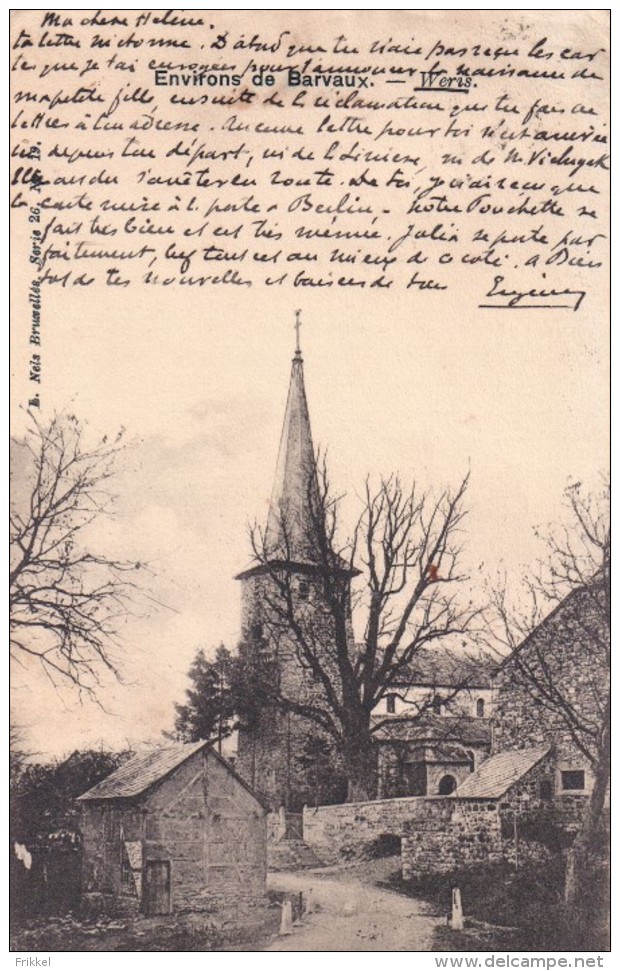 Ma chère Hélène.
ta lettre m'étonne. D'abord que tu n'aie pas reçu les car
tes que je t'ai envoyées pour t'annoncer la naissance de
Environs de Barvaux. — Weris.
ma petite fille, ensuite de la réclamation que tu fais de
lettres à ton adresse. Aucune lettre pour toi n'est arrivée
ici depuis ton départ, ni de ni de M.
a du s'arrêter en route. De toi, je n'ai reçu que
la carte mise à la poste à Berlin. notre se
fait très bien et est très mignonne. Julia se porte par
faitement, bref tout est au mieux de ce coté. A Bien
tot de tes nouvelles et baisers de tous
Eugène
E. Nels Bruxelles, Serie 26, No 19.
Frikkel
www.delcampe.net